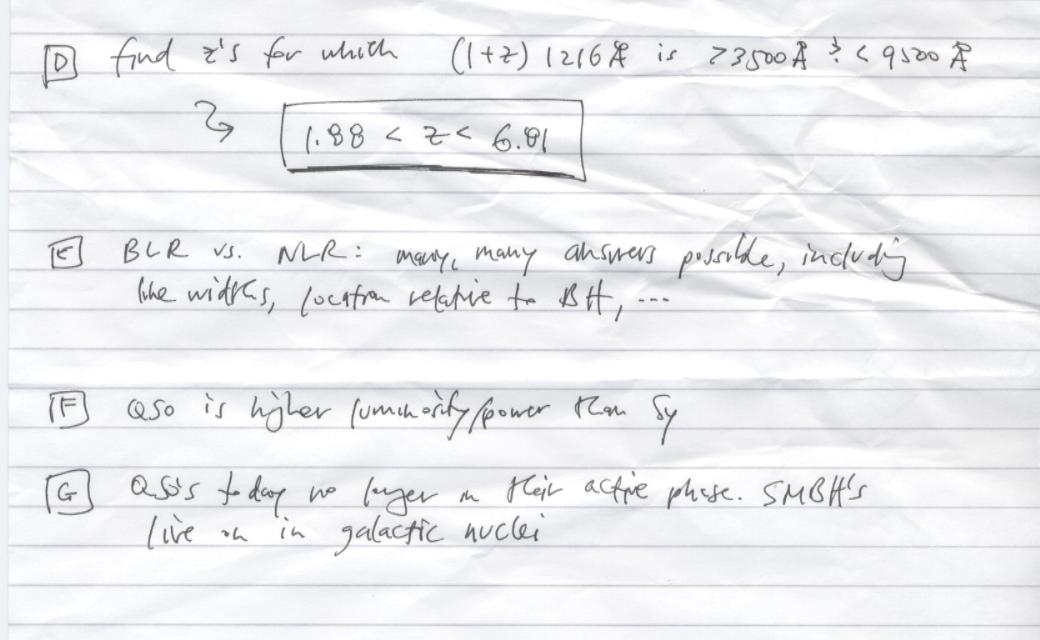 D find z's for which (1+z) 1216Å is >3500Å & < 9500 Å
1.88 < z < 6.81
E BLR vs. NLR: many, many answers possible, including
line widths, location relative to BH, ...
F QSO is higher luminosity/power than Sy
G QSO's today no longer in their active phase. SMBH's
live on in galactic nuclei